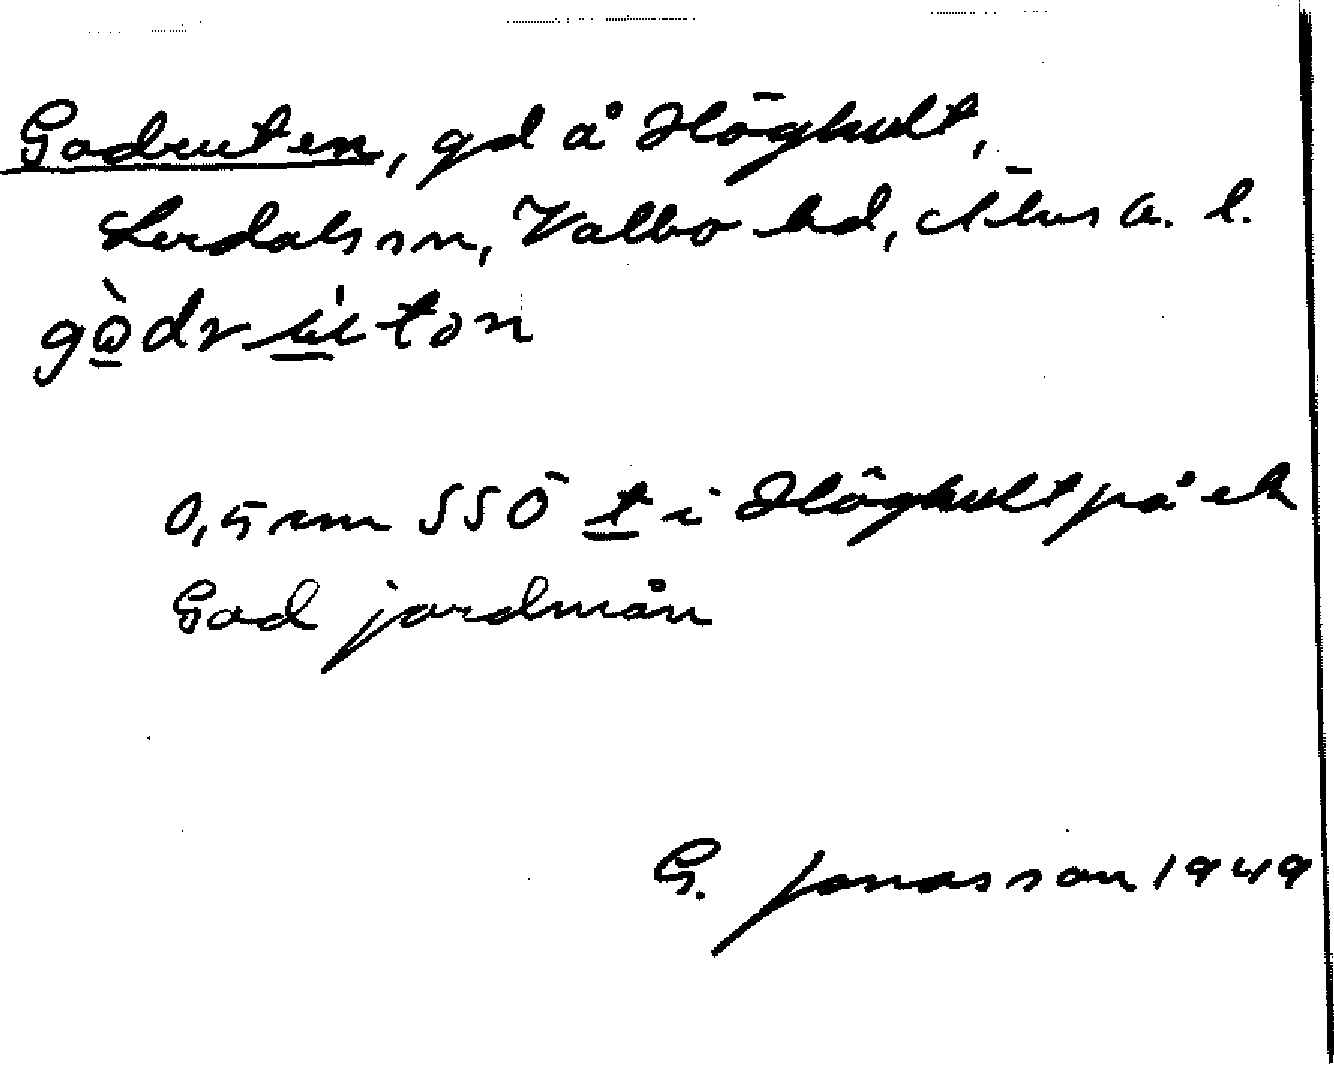 Godruten, gd å Höghult,
Lerdals sn, Valbo hd, Älvsb. l.
gòdrútən
0,5 km SSÖ t i Höghult på ek
God jordmån
G. Jonasson 1949